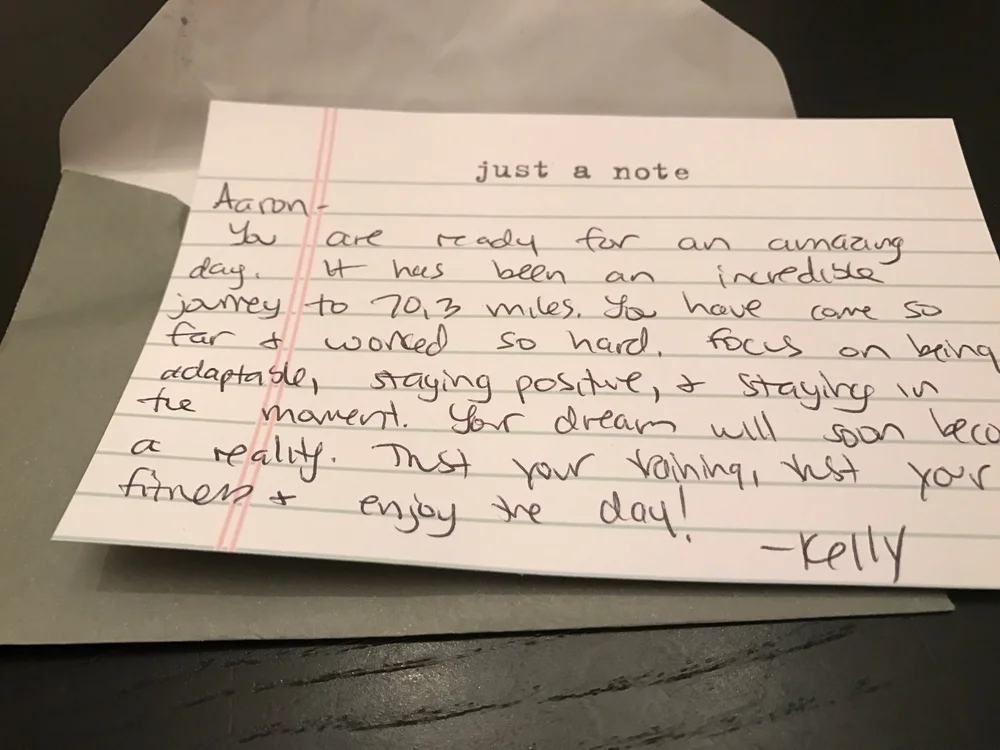 just a note
Aaron-
You are ready for an amazing
day. It has been an incredible
journey to 70.3 miles. You have come so
far & worked so hard. Focus on being
adaptable, staying positive, & staying in
the moment. Your dream will soon beco
a reality. Trust your training, trust your
fitness & enjoy the day!
-Kelly